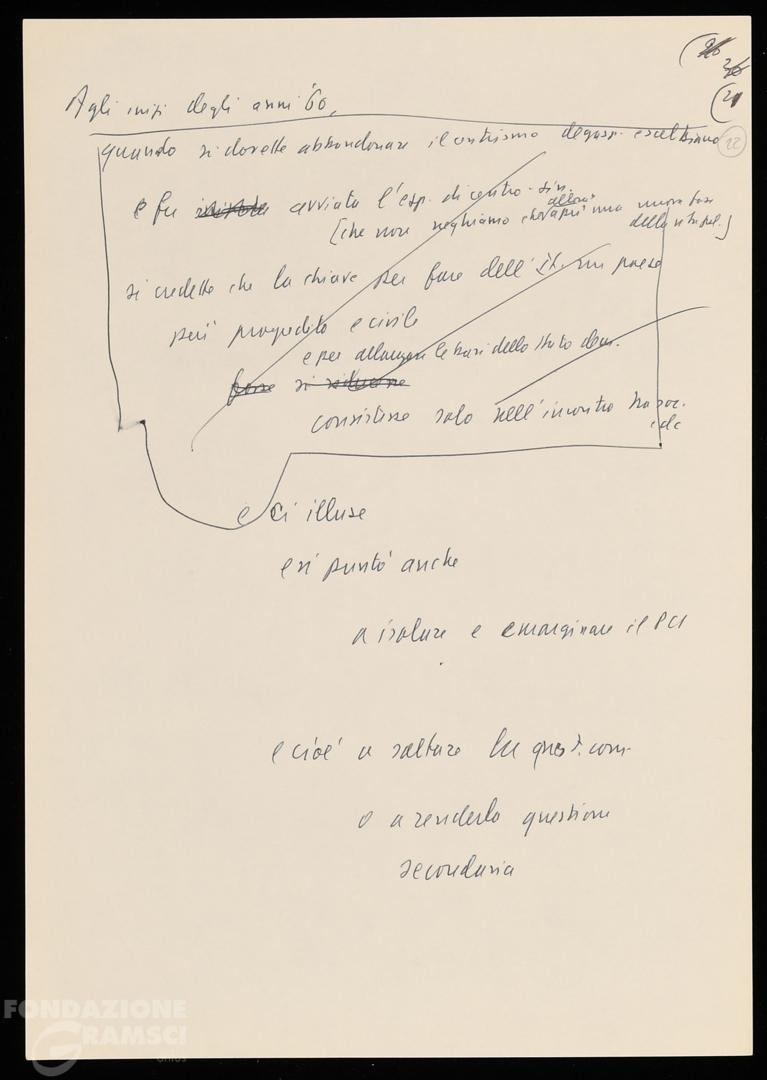 (26
36
(21
22
Agli inizi degli anni '60,
quando si dovette abbandonare il centrismo degasp. e scelbiano
e fu iniziata avviata l'esp. di centro-sin.
[che non neghiamo allora una nuova fase
della vita pol.]
si credette che la chiave per fare dell'It. un paese
più progredito e civile
e per allargare le basi dello Stato dem.
forse si ridusse
consistesse solo nell'incontro tra soc.
e dc
e ci illuse
e si puntò anche
a isolare e emarginare il PCI
e cioè a saltare la quest. com.
o a renderla questione
secondaria
FONDAZIONE
GRAMSCI
ONLUS